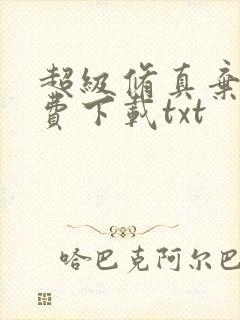 超級脩真棄
費下載txt
哈巴克阿尔巴